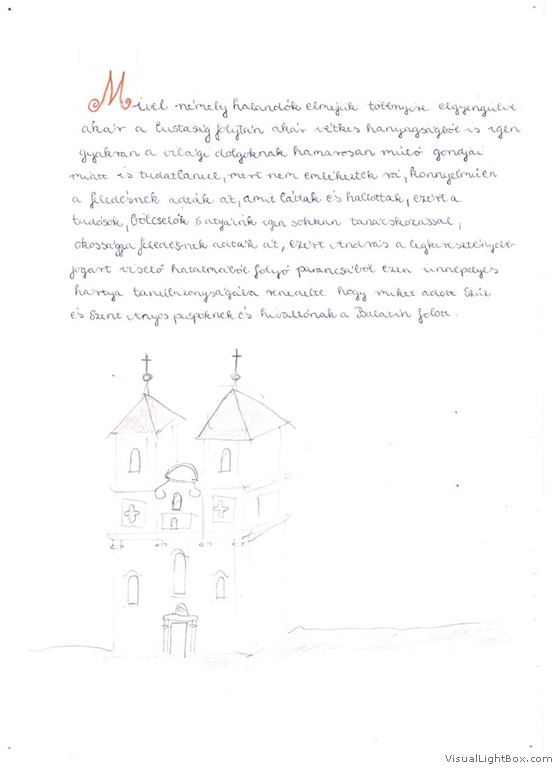 Mivel némely halandók elméjük többnyire elgyengülve
akár a lustaság folytán akár vétkes hanyagságból is igen
gyakran a világi dolgoknak hamarosan múló gondjai
miatt is tudatlanul, mert nem emlékeztek rá, könnyelműen
a feledésnek adták át, amit láttak és hallottak, ezért a
tudósok, bölcselők s atyáink igen sokkan tanácskozással,
okossággal feledésnek adták át, ezért András a legkeresztényebb
jogart viselő hatalmából folyó parancsából ezen ünnepélyes
hártya tanúbizonyságába rendelte hogy miket adott Szűz
és Szent Ányos püspöknek és hitvallónak a Balatin fölött.
VisualLightBox.com